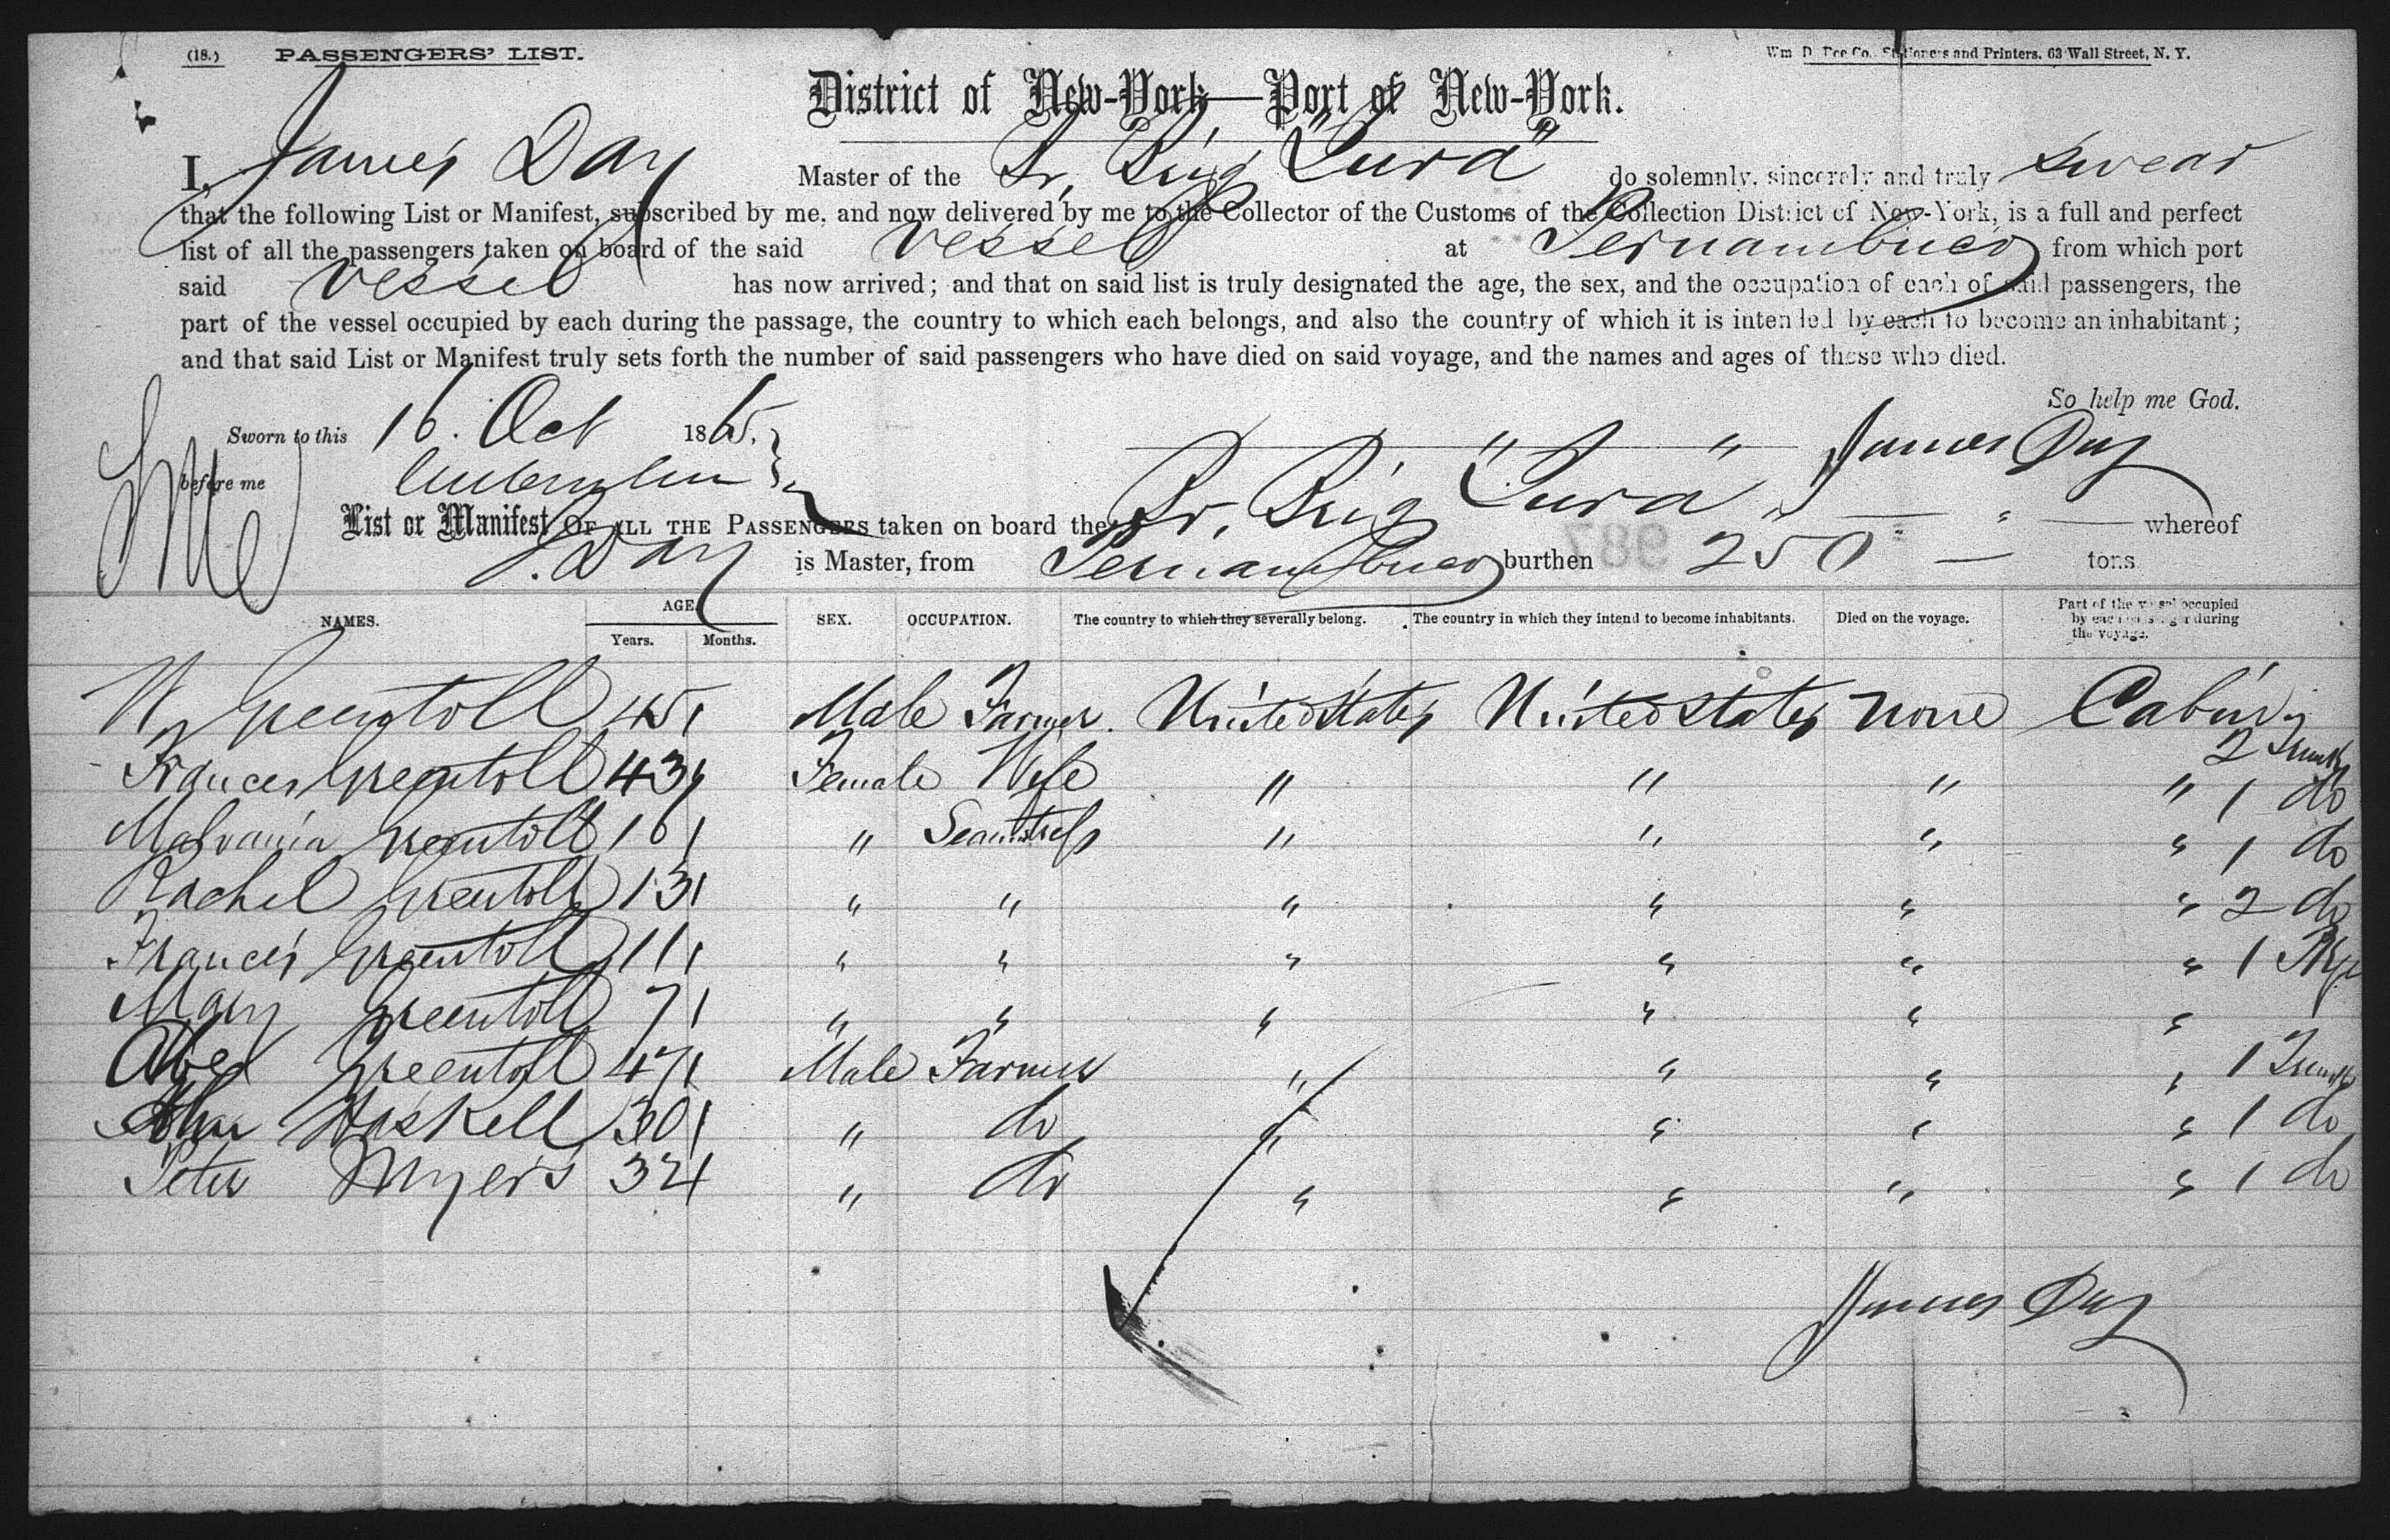 (18.) PASSENGERS' LIST. Wm. D. Roe Co. Stationers and Printers, 63 Wall Street, N. Y.
District of New-York—Port of New-York.
I, James Day Master of the Br. Brig "Lura" do solemnly, sincerely and truly swear
that the following List or Manifest, subscribed by me, and now delivered by me to the Collector of the Customs of the Collection District of New-York, is a full and perfect
list of all the passengers taken on board of the said vessel at Pernambuco from which port
said vessel has now arrived; and that on said list is truly designated the age, the sex, and the occupation of each of said passengers, the
part of the vessel occupied by each during the passage, the country to which each belongs, and also the country of which it is intended by each to become an inhabitant;
and that said List or Manifest truly sets forth the number of said passengers who have died on said voyage, and the names and ages of those who died.
So help me God.
Sworn to this 16. Oct 1865. James Day
before me
List or Manifest OF ALL THE PASSENGERS taken on board the Br. Brig "Lura" whereof
J. Day is Master, from Pernambuco burthen 250 tons
987
NAMES. AGE. SEX. OCCUPATION. The country to which they severally belong. The country in which they intend to become inhabitants. Died on the voyage. Part of the vessel occupied by each passenger during the voyage.
Years. Months.
Greentoll 45 Male Farmer. United States United States None Cabin
2 Trunks
Frances Greentoll 43 Female Wife " " " " 1 do
Malvania Greentoll 16 " Seamstress " " " " 1 do
Rachel Greentoll 13 " " " " " " 2 do
Frances Greentoll 11 " " " " " " 1
Mary Greentoll 7 " " " " " "
Abel Greentoll 47 Male Farmer " " " " 1 Trunk
Haskell 30 " do " " " " 1 do
Peter Myers 32 " do " " " " 1 do
James Day